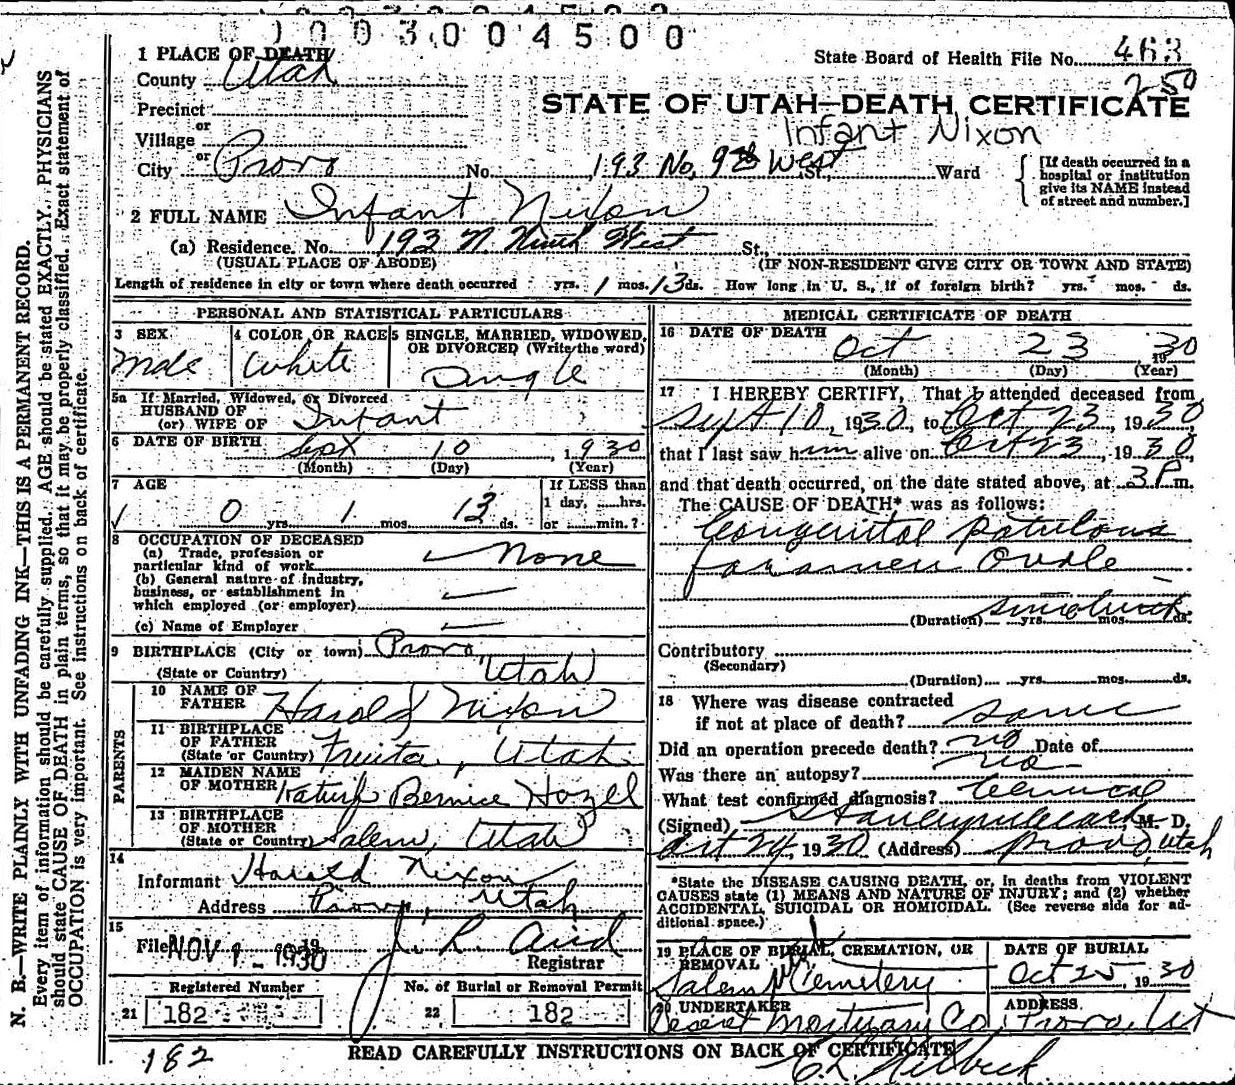 0 0 0 3 0 0 4 5 0 0
1 PLACE OF DEATH
County Utah
State Board of Health File No. 463
250
Precinct
STATE OF UTAH—DEATH CERTIFICATE
or
Village
Infant Nixon
or
City Provo No. 193 No. 9th West St., Ward
[If death occurred in a
hospital or institution
give its NAME instead
of street and number.]
2 FULL NAME Infant Nixon
(a) Residence, No. 193 N. Ninth West St.,
(USUAL PLACE OF ABODE) (IF NON-RESIDENT GIVE CITY OR TOWN AND STATE)
Length of residence in city or town where death occurred yrs. 1 mos. 13 ds. How long in U. S., if of foreign birth? yrs. mos. ds.
PERSONAL AND STATISTICAL PARTICULARS
3 SEX
Male
4 COLOR OR RACE
White
5 SINGLE, MARRIED, WIDOWED,
OR DIVORCED (Write the word)
Single
5a If Married, Widowed, or Divorced
HUSBAND OF
(or) WIFE OF Infant
6 DATE OF BIRTH Sept 10, 1930
(Month) (Day) (Year)
7 AGE
0 yrs. 1 mos. 13 ds.
If LESS than
1 day, hrs.
or min.?
8 OCCUPATION OF DECEASED
(a) Trade, profession or
particular kind of work None
(b) General nature of industry,
business, or establishment in
which employed (or employer)
(c) Name of Employer
9 BIRTHPLACE (City or town) Provo,
(State or Country) Utah
PARENTS
10 NAME OF
FATHER Harold Nixon
11 BIRTHPLACE
OF FATHER
(State or Country) Fruita, Utah
12 MAIDEN NAME
OF MOTHER Bernice Hazel
13 BIRTHPLACE
OF MOTHER
(State or Country) Salem, Utah
14
Informant Harold Nixon
Address Provo, Utah
15
Filed NOV 1 - 1930 J. R.
Registrar
Registered Number
21 182
No. of Burial or Removal Permit
22 182
MEDICAL CERTIFICATE OF DEATH
16 DATE OF DEATH
Oct 23, 1930
(Month) (Day) (Year)
17 I HEREBY CERTIFY, That I attended deceased from
Sept 10, 1930, to Oct 23, 1930,
that I last saw him alive on Oct 23, 1930,
and that death occurred, on the date stated above, at 3P m.
The CAUSE OF DEATH* was as follows:
Congenital patulous
foramen Ovale
(Duration) since birth yrs. mos. ds.
Contributory
(Secondary)
(Duration) yrs. mos. ds.
18 Where was disease contracted
if not at place of death? same
Did an operation precede death? no Date of
Was there an autopsy? no
What test confirmed diagnosis? Clinical
(Signed) M. D.
Oct 24, 1930 (Address) Provo, Utah
*State the DISEASE CAUSING DEATH, or, in deaths from VIOLENT
CAUSES state (1) MEANS AND NATURE OF INJURY; and (2) whether
ACCIDENTAL, SUICIDAL OR HOMICIDAL. (See reverse side for ad-
ditional space.)
19 PLACE OF BURIAL, CREMATION, OR
REMOVAL
Salem Cemetery
DATE OF BURIAL
Oct 25, 1930
20 UNDERTAKER
Deseret Mortuary Co
ADDRESS
Provo, Ut
182
READ CAREFULLY INSTRUCTIONS ON BACK OF CERTIFICATE
N. B.—WRITE PLAINLY WITH UNFADING INK—THIS IS A PERMANENT RECORD.
Every item of information should be carefully supplied. AGE should be stated EXACTLY. PHYSICIANS
should state CAUSE OF DEATH in plain terms, so that it may be properly classified. Exact statement of
OCCUPATION is very important. See instructions on back of certificate.